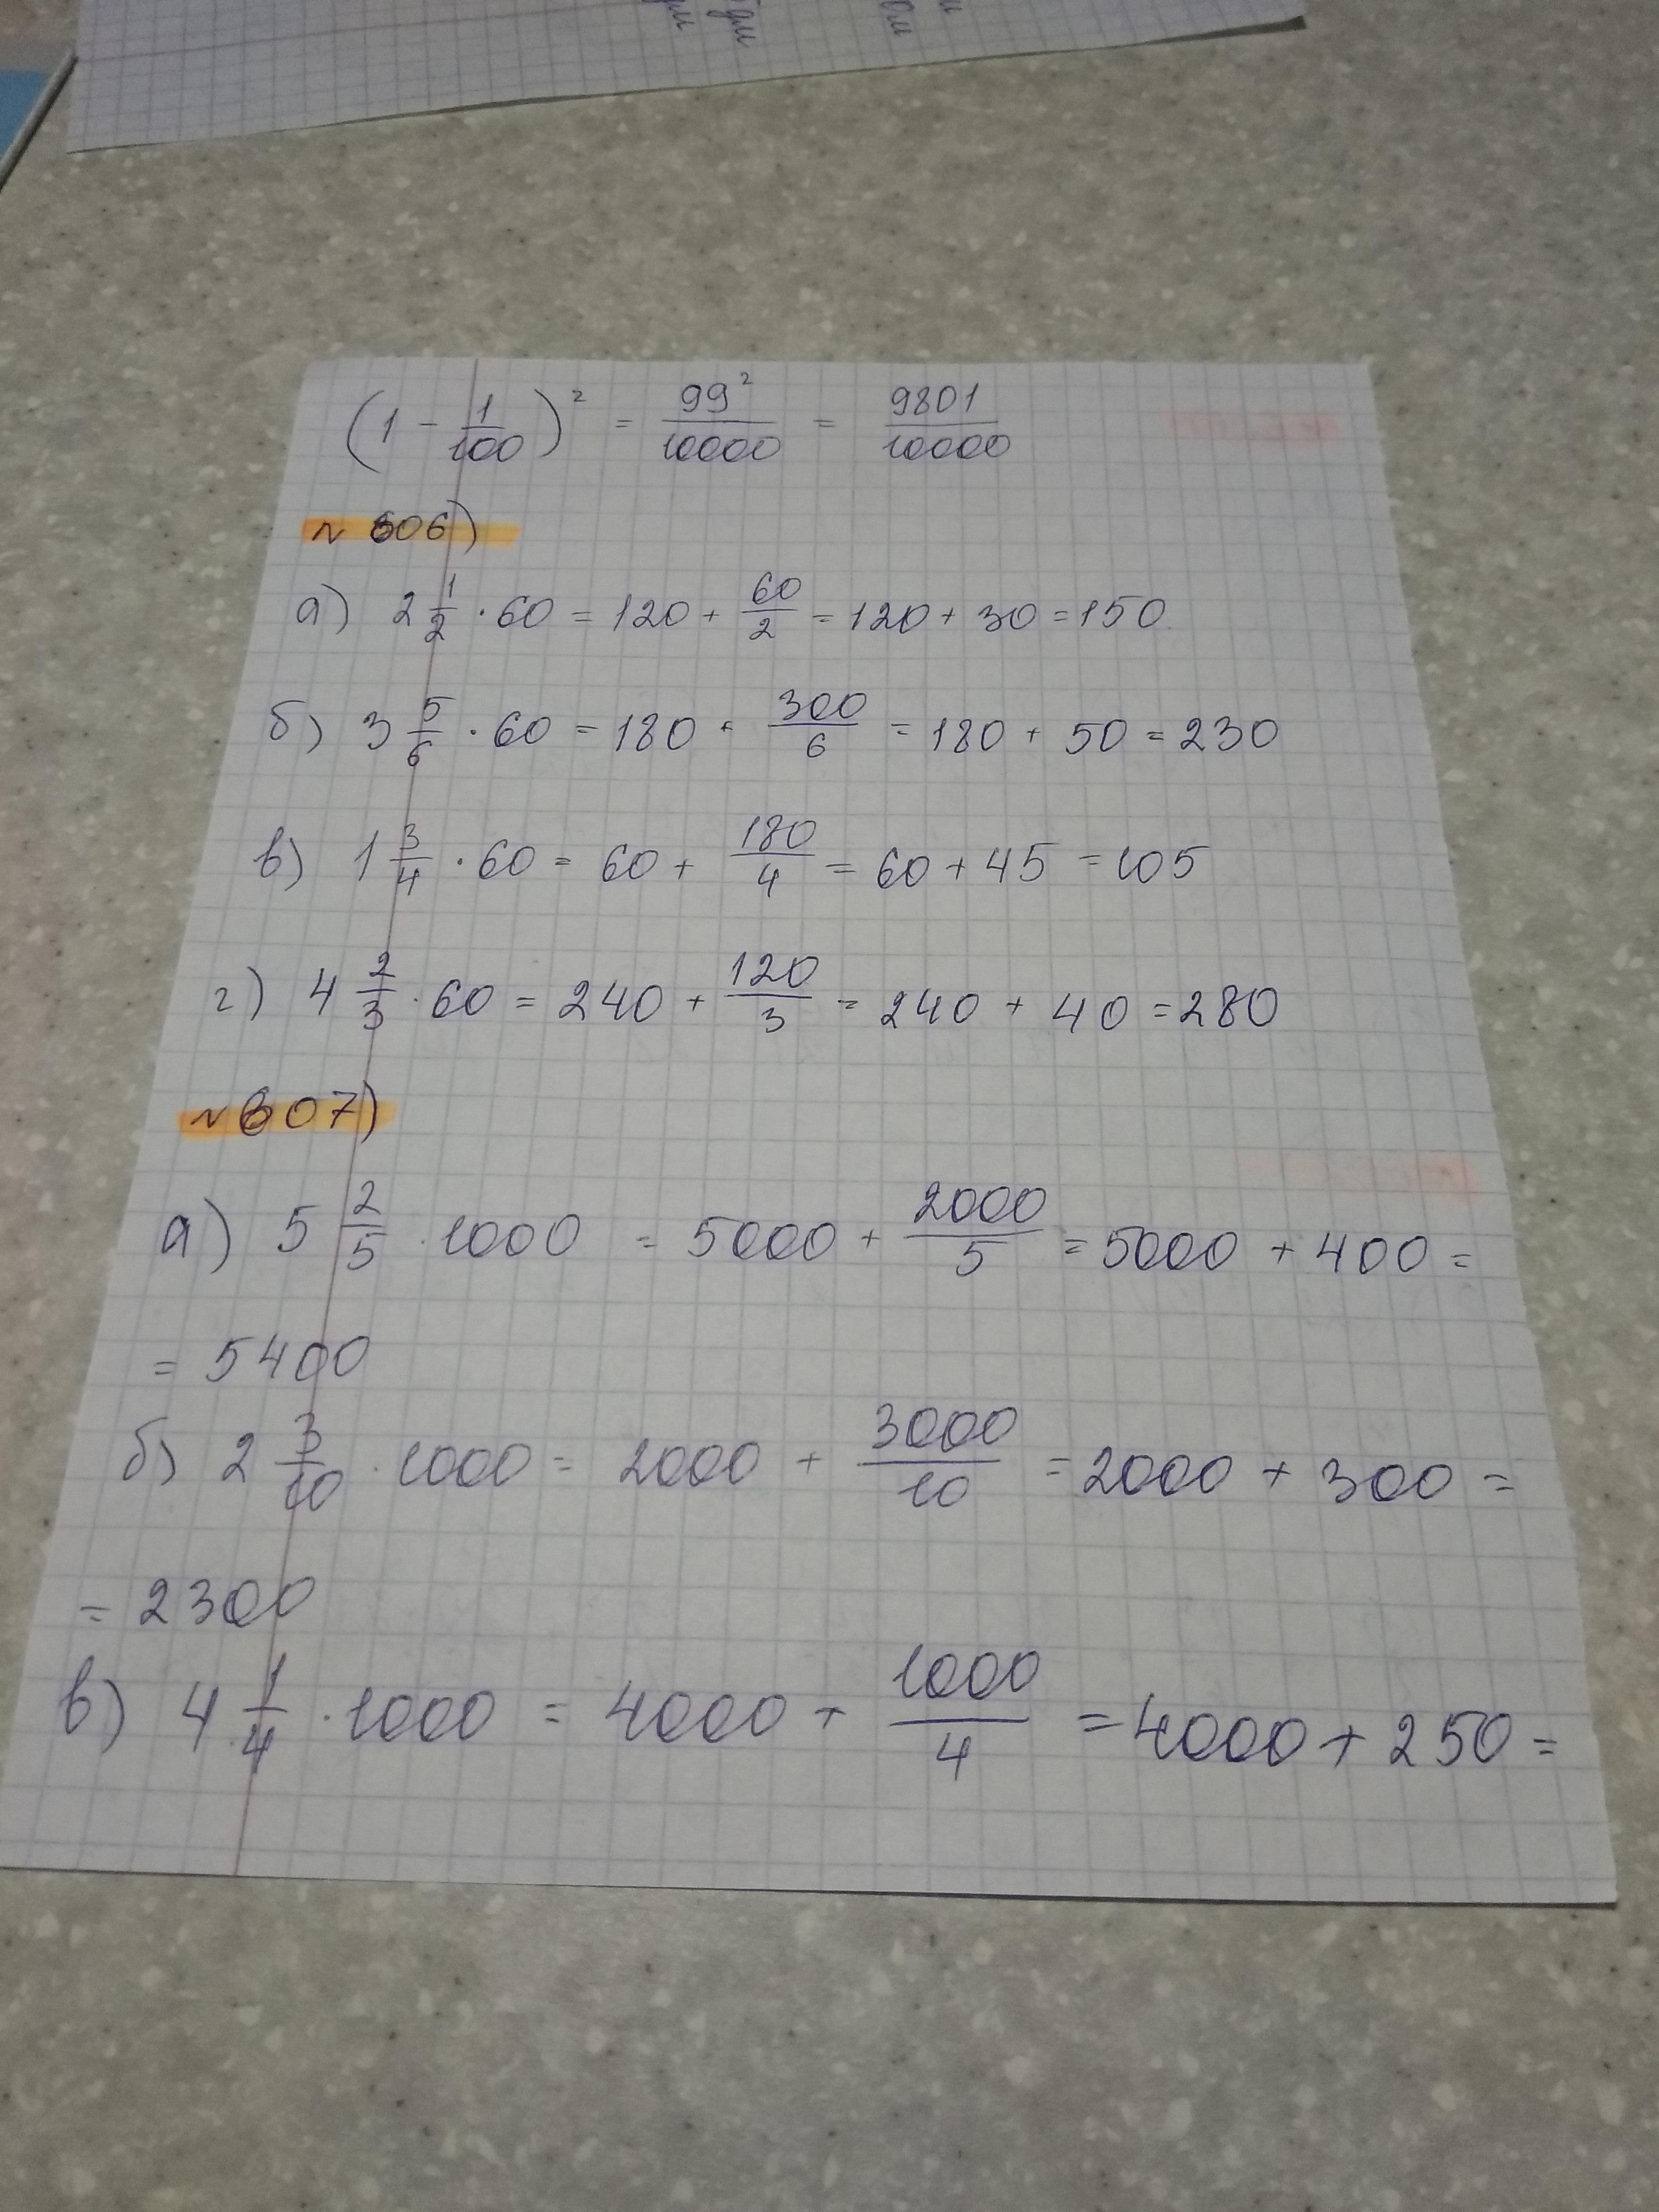 (1 - 1/100)² = 99²/10000 = 9801/10000
№ 606)
а) 2 1/2 · 60 = 120 + 60/2 = 120 + 30 = 150.
б) 3 5/6 · 60 = 180 + 300/6 = 180 + 50 = 230
в) 1 3/4 · 60 = 60 + 180/4 = 60 + 45 = 105
г) 4 2/3 · 60 = 240 + 120/3 = 240 + 40 = 280
№ 607)
а) 5 2/5 · 1000 = 5000 + 2000/5 = 5000 + 400 =
= 5400
б) 2 3/10 · 1000 = 2000 + 3000/10 = 2000 + 300 =
= 2300
в) 4 1/4 · 1000 = 4000 + 1000/4 = 4000 + 250 =